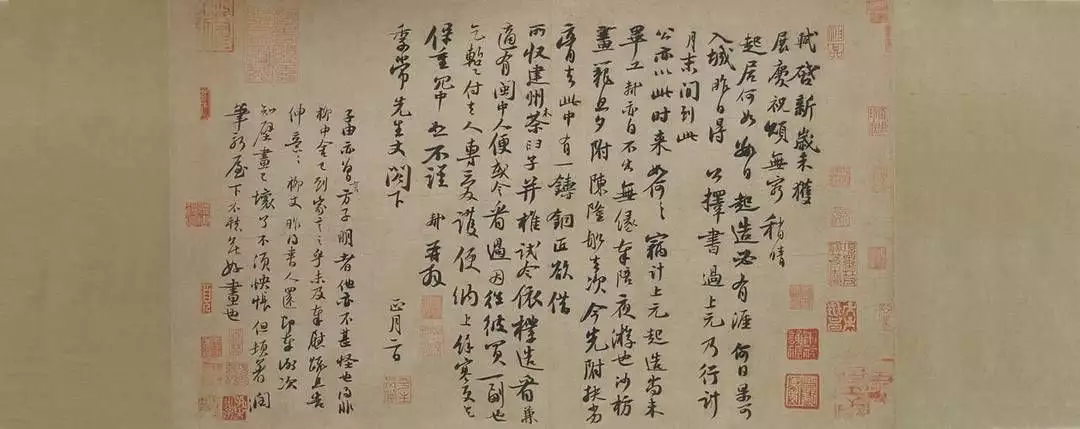 軾啓新歲未獲
展慶祝頌無窮稍晴
起居何如數日起造必有涯何日果可
入城昨日得公擇書過上元乃行計
月末間到此
公亦以此時来如何々竊計上元起造尚未
畢工軾亦自不出無緣奉陪夜游也沙枋
畫籠旦夕附陳隆船去次今先附扶劣
膏去此中有一鑄銅匠欲借
所收建州木茶臼子并椎試令依樣造看兼
適有閩中人便或令看過因往彼買一副也
乞暫付去人專愛護便納上餘寒更乞
保重冗中恕不謹軾再拜
季常先生丈閤下
正月二日
子由亦曾言方子明者他亦不甚怪也得非
柳中舍已到家言之乎未及奉慰疏且告
伸意々柳丈昨得書人還即奉謝次
知壁畫已壞了不須怏悵但頓著潤
筆新屋下不愁無好畫也